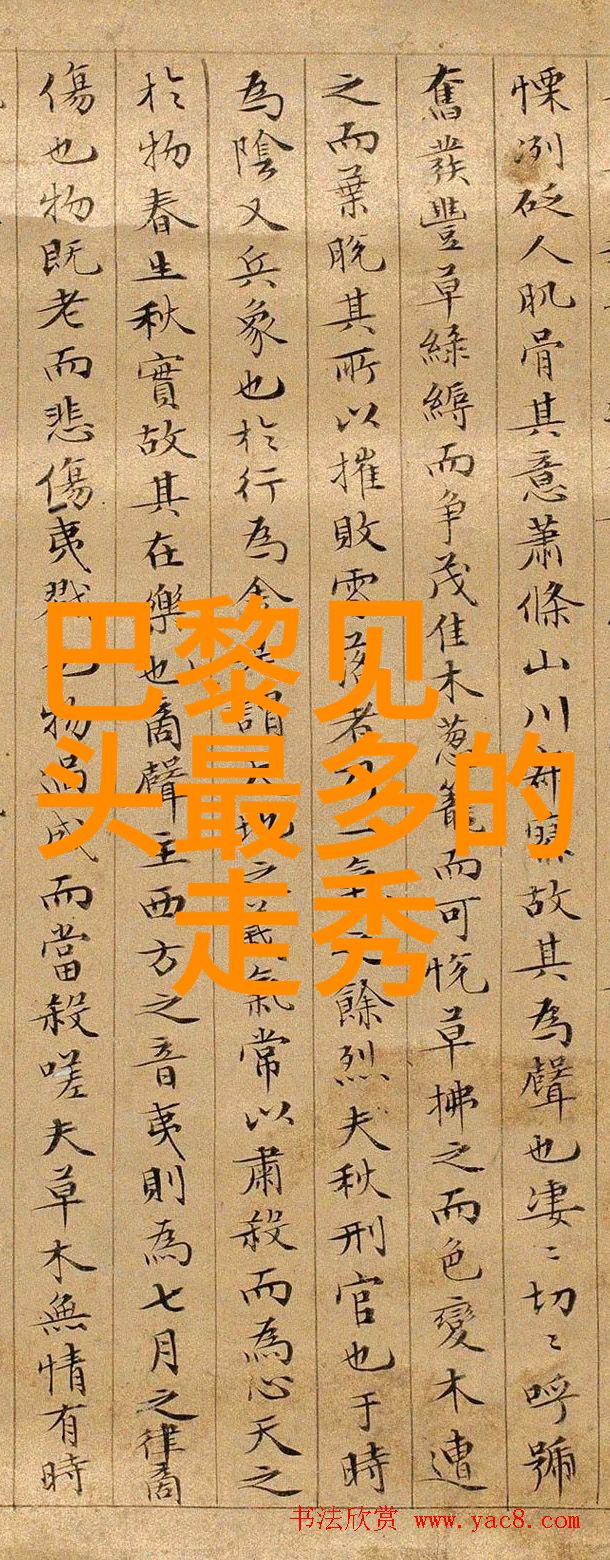 慄冽砭人肌骨其意蕭條山川寂寥故其為聲也淒〻切〻呼號
奮發豐草綠縟而争茂佳木葱蘢而可悅草拂之而色變木遭
之而葉脫其所以摧敗零落者一氣餘烈夫秋刑官也于時
為陰又兵象也於行為金是謂天地之義氣常以肅殺而為心天之
於物春生秋實故其在樂也商聲主西方之音夷則為七月之律商
傷也物既老而悲傷夷戮也物過盛而當殺嗟夫草木無情有時
巴黎见
头最多的
走秀
书法欣赏 www.yac8.com